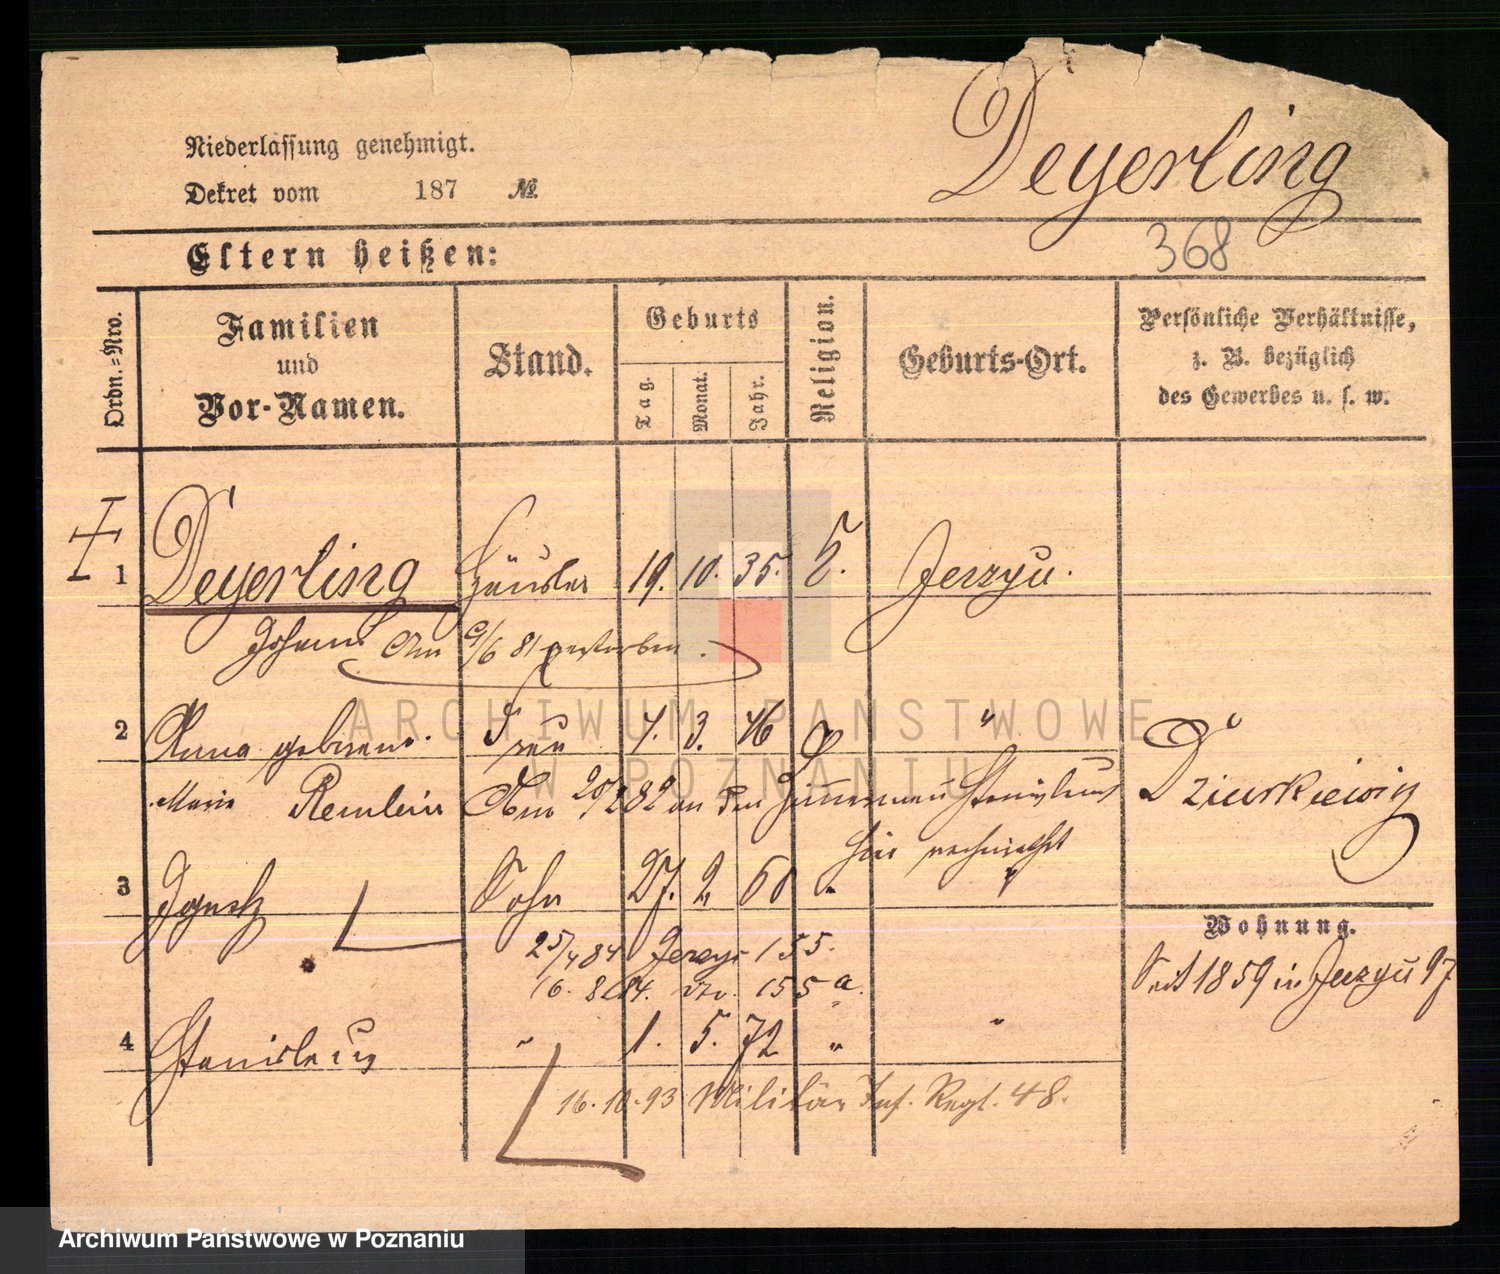 Deyerling
Niederlassung genehmigt.
Dekret vom 187 №
368
Eltern heißen:
Ordn.=Nro.
Familien
und
Vor-Namen.
Stand.
Geburts
Tag.
Monat.
Jahr.
Religion.
Geburts-Ort.
Persönliche Verhältnisse,
z. B. bezüglich
des Gewerbes u. s. w.
1 Deyerling Häusler 19. 10. 35. Jerzyce.
Johann Am 9/6 81 gestorben.
2 Anna geborene Frau 7. 3. 46 "
Marie Remlein Am 20/2 82 an den Zimmermann Stanislaus Dziurkiewig
hier verheirathet
3 Ignatz Sohn 27. 2 60 " "
25/4 84 Jerzyc 155.
16. 8. 84. 155 a.
4 Stanislaus " 1. 5. 72 " "
16. 10. 93 Militär Inf. Regt. 48.
Wohnung.
Seit 1859 in Jerzyce 97
ARCHIWUM PAŃSTWOWE
W POZNANIU
Archiwum Państwowe w Poznaniu